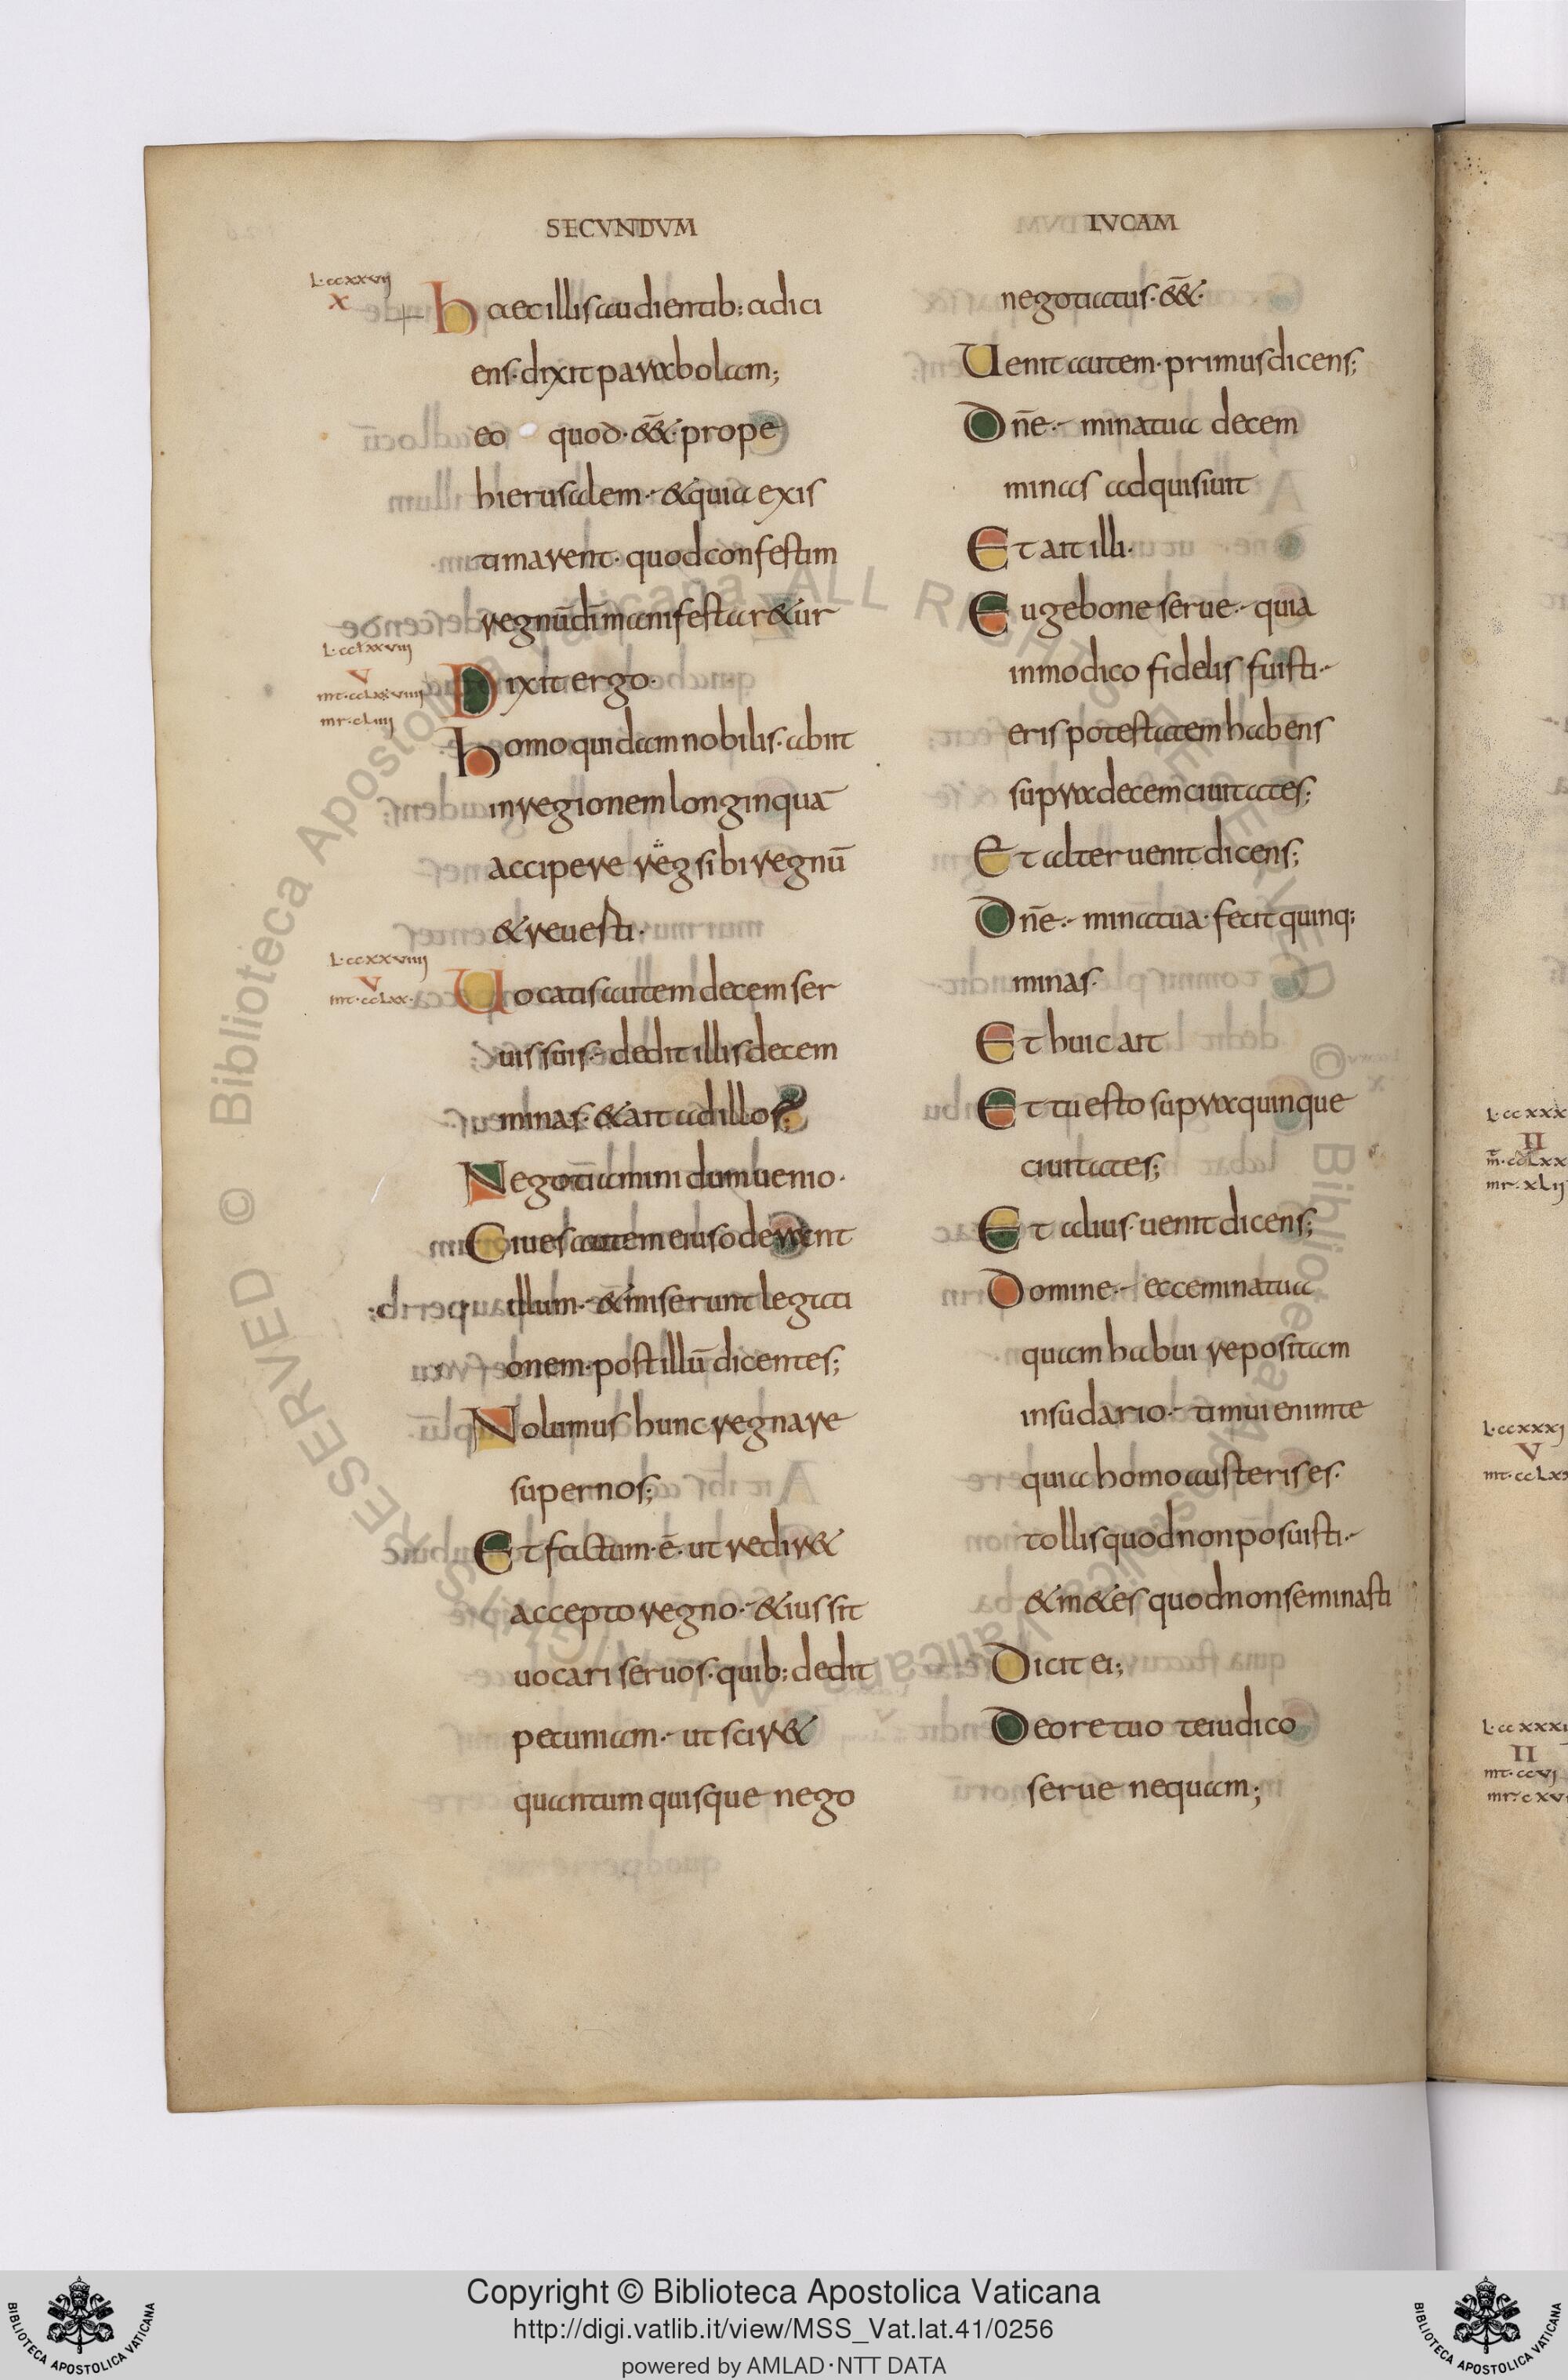 SECVNDVM
LVCAM
L·ccxxvij
X
Haec illis audientib: adici
ens·dixit parabolam;
eo quod·eēt·prope
hierusalem·&quia exis
timarent·quod confestim
regnū dī manifestar&ur
L·ccxxviij
V
mt·ccLxviiij
mr·cLiiij
Dixit ergo·
homo quidam nobilis·abiit
in regionem longinquā
accipere reg sibi regnū
&reuesti·
L·ccxxviiij
V
mt·ccLxx·
Uocatis autem decem ser
uis suis·dedit illis decem
minas·&ait ad illos;
Negotiamini dum uenio·
Ciues autem eius oderant
illum·&miserunt legati
onem·post illū dicentes;
Nolumus hunc regnare
super nos;
Et factum·ē·ut redir&
accepto regno·&iussit
uocari seruos·quib: dedit
pecuniam·ut scir&
quantum quisque nego
negotiatus·eēt·
Uenit autem·primus dicens;
Dn̄e·mina tua decem
minas adquisiuit
Et ait illi·
Euge bone serue·quia
in modico fidelis fuisti·
eris potestatem habens
supra decem ciuitates;
Et alter uenit dicens;
Dn̄e·mina tua·fecit quinq;
minas·
Et huic ait
Et tu esto supra quinque
ciuitates;
Et alius·uenit dicens;
Domine·ecce mina tua
quam habui repositam
in sudario·timui enim te
quia homo austeris es·
tollis quod non posuisti·
&m&es quod non seminasti
Dicit ei;
De ore tuo te iudico
serue nequam;
L·ccxxx
II
mr·xLij
L·ccxxxj
V
mt·ccLxx
L·ccxxxi
II
mt·ccvj
mr·cxv
© Biblioteca Apostolica Vaticana ALL RIGHTS RESERVED
Copyright © Biblioteca Apostolica Vaticana
http://digi.vatlib.it/view/MSS_Vat.lat.41/0256
powered by AMLAD·NTT DATA
BIBLIOTECA APOSTOLICA VATICANA
BIBLIOTECA APOSTOLICA VATICANA